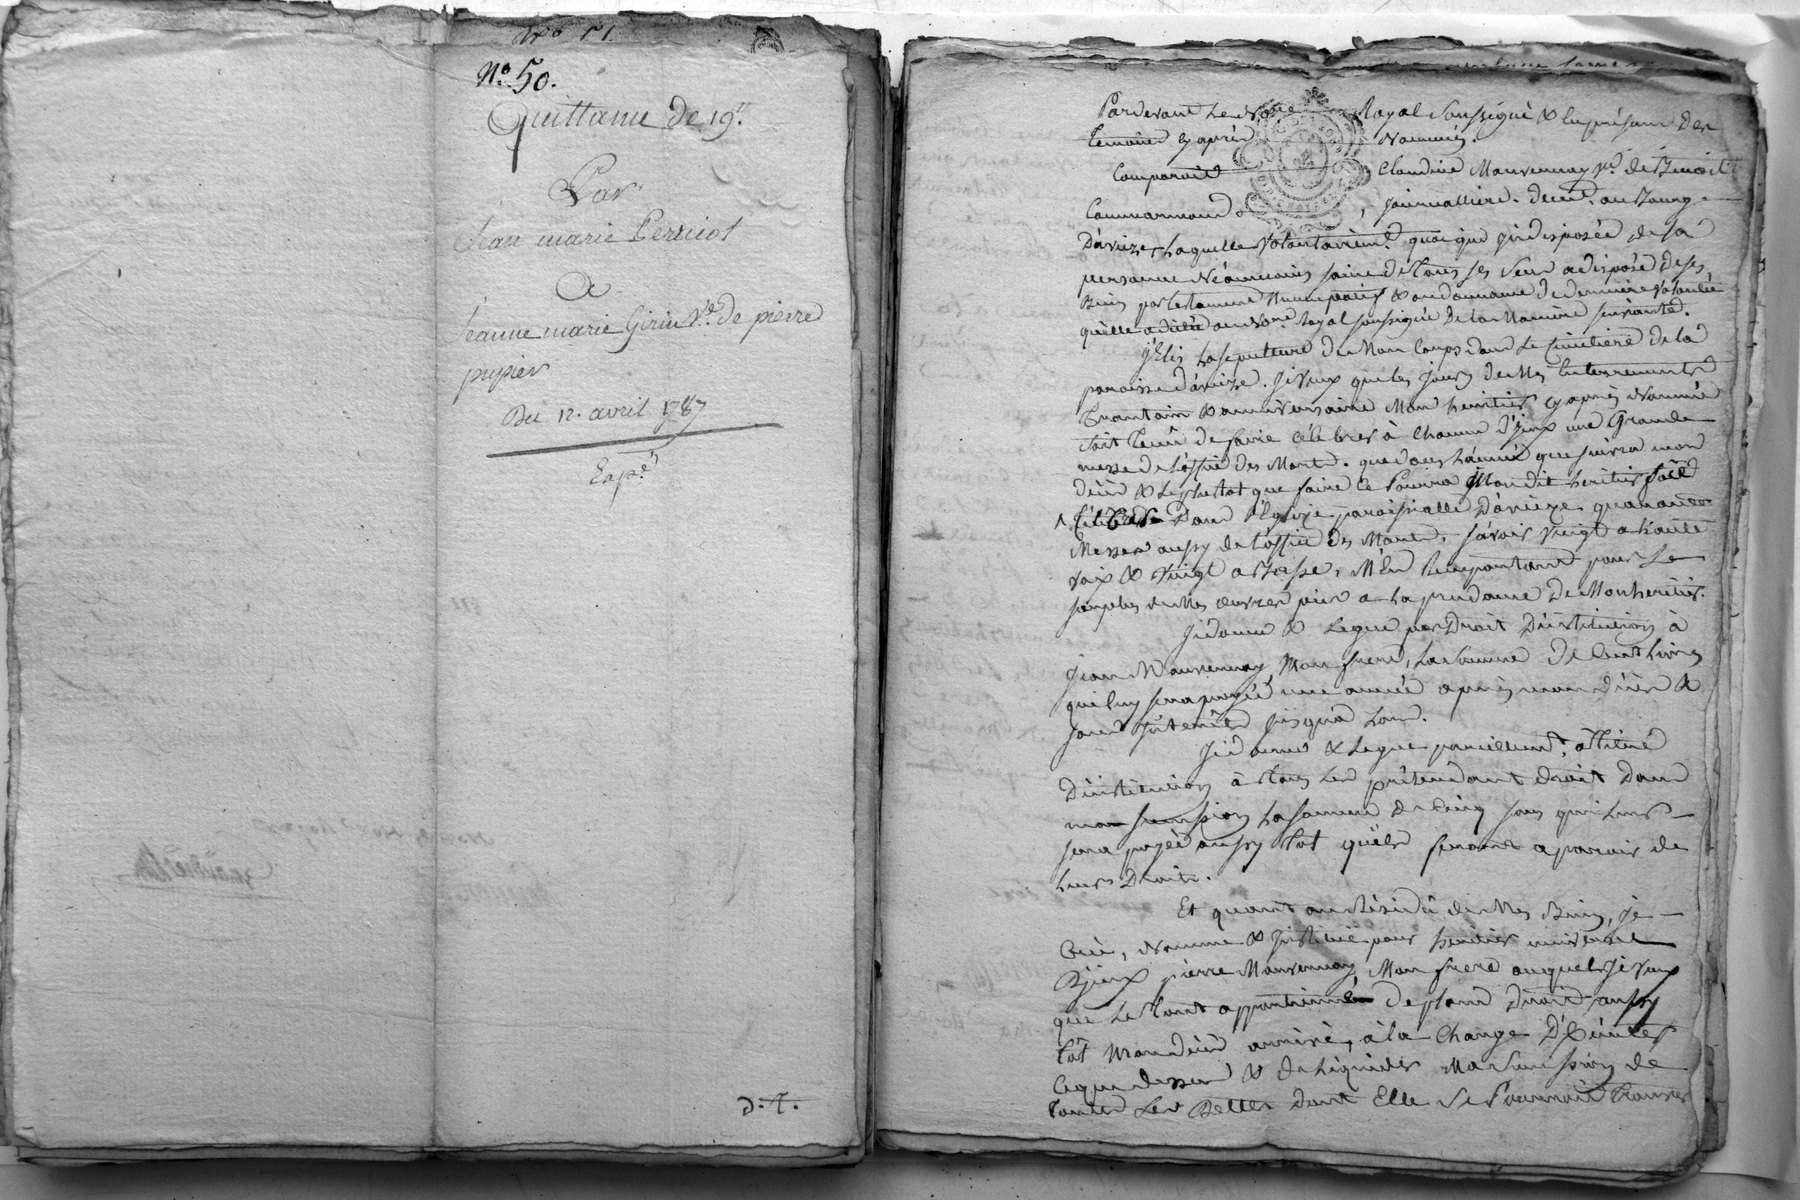 No 51
No. 50.
Quittance de 19.lt
Par
Jean marie Perricot
A
Jeanne marie Girin Ve. de pierre
pupier
Du 12. avril 1787
Exp.é
d. t.
Pardevant Le No.re Royal Soussigné & En présence Des
temoins cy après Nommés.
Comparait Claudine Mauvernay Ve. de Benoit
Commarmond journalliere. demt. au Bourg
D'aveize, Laquelle Volontairemt. quoi que indisposée de sa
personne Néanmoins saine de tous ses sens a disposé de ses
Biens par testament Nuncupatif & ordonnance de derniere Volonté
qu'elle a dicté au No.re Royal soussigné De la Maniere suivante.
J'Elis La sepulture de Mon Corps dans Le Cimitiere de la
paroisse d'aveize. Je veux que les jours de Mes Enterrements
quarantain & anniversaire Mon heritier cy après Nommé
soit tenu de faire célébrer à Chacun d'Iceux une Grande
messe de l'office des Morts. que dans l'année qui suivra mon
décès & Le plutot que faire Ce Pourra Mon dit heritier fasse
Célébrer Dans l'Eglise paroissialle D'aveize quarante
Messes aussy de l'office des Morts, savoir vingt a haute
voix & vingt a Basse, M'En Raportant pour Le
surplus de Mes œuvres pies a La prudence De Mon heritier.
Je donne & Legue par Droit D'institution à
Jean Mauvernay Mon frere, La somme De Cent Livres
qui luy sera payée une année après mon décès &
sans Interêts jusqu'a Lors.
Je donne & Legue pareillemt. a titre
D'institution à tous Les prétendant droit Dans
ma succession La somme de Cinq sous qui Leurs
sera payée aussy tot qu'ils feront aparoir de
Leurs Droits.
Et quant au Résidû de Mes Biens, je
Crée, Nomme & Institue pour heritier universel
D'iceux pierre Mauvernay Mon frere auquel Je veux
que Le tout appartienne De plein Droit aussy
tôt Mon décès arrivé, à la Charge D'Exécuter
Ce que dessus & de Liquider Ma succession de
toutes Les Dettes Dont Elle Se Pourroit trouver